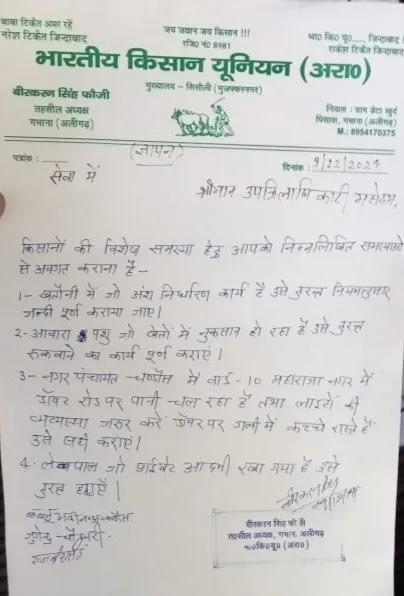 बाबा टिकैत अमर रहें
नरेश टिकैत जिन्दाबाद
जय जवान जय किसान !!!
रजि० नं० 8981
भा० कि० यू०..... जिन्दाबाद
राकेश टिकैत जिन्दाबाद
भारतीय किसान यूनियन (अरा०)
मुख्यालय – सिसौली (मुजफ्फरनगर)
वीरकरन सिंह फौजी
तहसील अध्यक्ष
गभाना (अलीगढ़)
निवास : ग्राम डेटा खुर्द
पिसावा, गभाना (अलीगढ़)
M.: 8954170375
पत्रांक :
(ज्ञापन)
दिनांक :
सेवा में
श्रीमान उपजिलाधिकारी महोदय,
किसानों की विशेष समस्या हेतु आपको निम्नलिखित समस्याओं
से अवगत कराना है –
1- खतौनी में जो अंश निर्धारण कार्य है उसे तुरन्त नियमानुसार
जल्दी पूर्ण कराया जाए।
2- आवारा पशु जो खेतों में नुकसान हो रहा है उसे तुरन्त
रुकवाने का कार्य पूर्ण कराएं।
3- नगर पंचायत – चण्डौस में वार्ड - 10 महाराजा नगर में
डाबर रोड पर पानी चल रहा है तथा लाइटों की
व्यवस्था जरुर करें डॉबर पर गली में कच्चे रास्ते है
उसे सही कराएं।
4- लेखपाल जो प्राईवेट आदमी रखा गया है उसे
तुरन्त हटाएँ।
चौधरी
वीरकरन सिंह फौजी
तहसील अध्यक्ष, गभाना, अलीगढ़
भ०कि०यू० (अरा०)